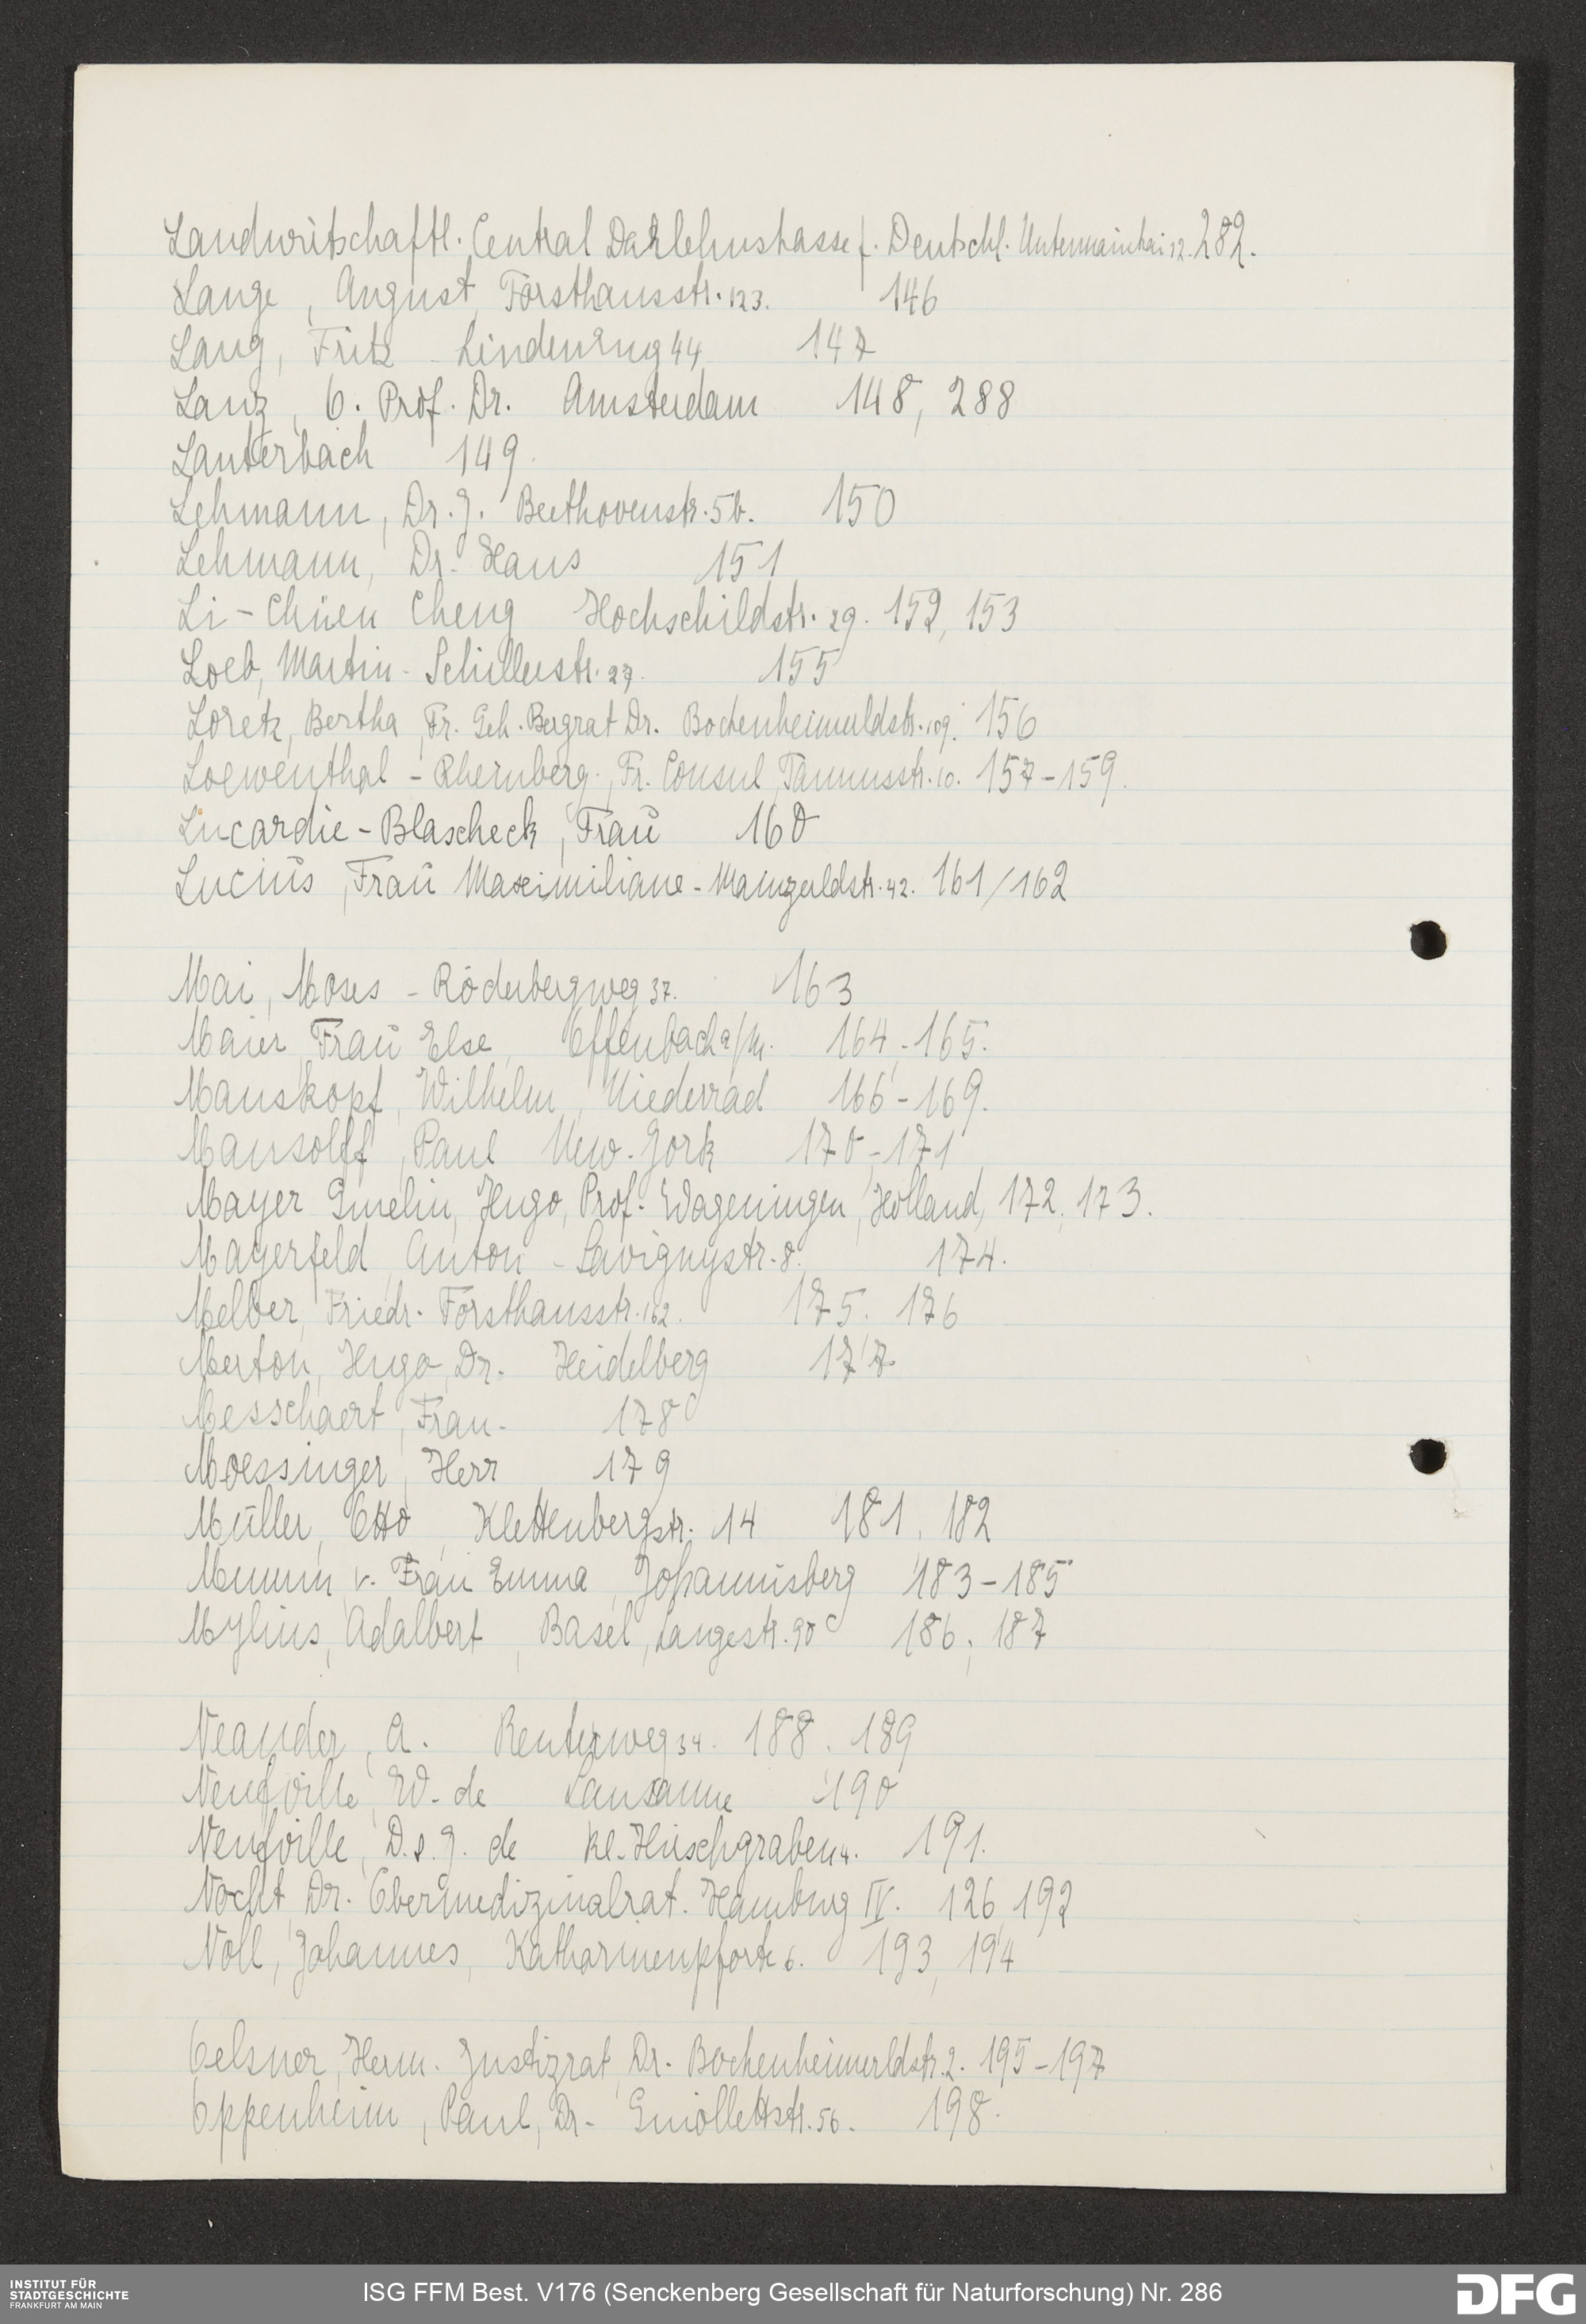 Landwirtschaftl. Central Darlehnskasse f. Deutschl. Untermainkai 12. 282.
Lange, August, Forsthausstr. 123. 146
Lang, Fritz - Lindenring 44 147
Lanz, O. Prof. Dr. Amsterdam 148, 288
Lauterbach 149.
Lehmann, Dr. J. Beethovenstr. 5b. 150
Lehmann, Dr. Hans 151
Li-Chüen Cheng Hochschildstr. 29. 152, 153
Loeb, Martin - Schillerstr. 27. 155
Loretz, Bertha, Fr. Geh. Bergrat Dr. Bockenheimerldstr. 109. 156
Loewenthal - Rheinberg, Fr. Consul, Taunusstr. 10. 157-159.
Lucardie-Blascheck, Frau 160
Lucius, Frau Maximiliane - Mainzerldstr. 42. 161/162
Mai, Moses - Röderbergweg 37. 163
Maier, Frau Else, Offenbach a/M. 164, 165.
Manskopf, Wilhelm, Niederrad 166-169.
Mansolff, Paul New-York 170-171
Mayer Gmelin, Hugo, Prof. Wageningen, Holland, 172, 173.
Mayerfeld, Anton - Savignystr. 8. 174.
Melber, Friedr. Forsthausstr. 102. 175. 176
Merton, Hugo, Dr. Heidelberg 177
Messchaert, Frau - 178
Moessinger, Herr 179
Müller, Otto, Klettenbergstr. 14 181, 182
Mumm v. Frau Emma, Johannisberg 183-185
Mylius, Adalbert, Basel, Langestr. 90 186, 187
Neander, A. Reuterweg 34. 188. 189
Neufville, W. de Lausanne 190
Neufville, D. s. J. de Kl. Hirschgraben 4. 191.
Nocht, Dr. Obermedizinalrat. Hamburg IV. 126, 192
Noll, Johannes, Katharinenpforte 6. 193, 194
Oelsner, Herm. Justizrat, Dr. Bockenheimerldstr. 2. 195-197
Oppenheim, Paul, Dr. - Guiollettstr. 56. 198.
INSTITUT FÜR
STADTGESCHICHTE
FRANKFURT AM MAIN
ISG FFM Best. V176 (Senckenberg Gesellschaft für Naturforschung) Nr. 286
DFG